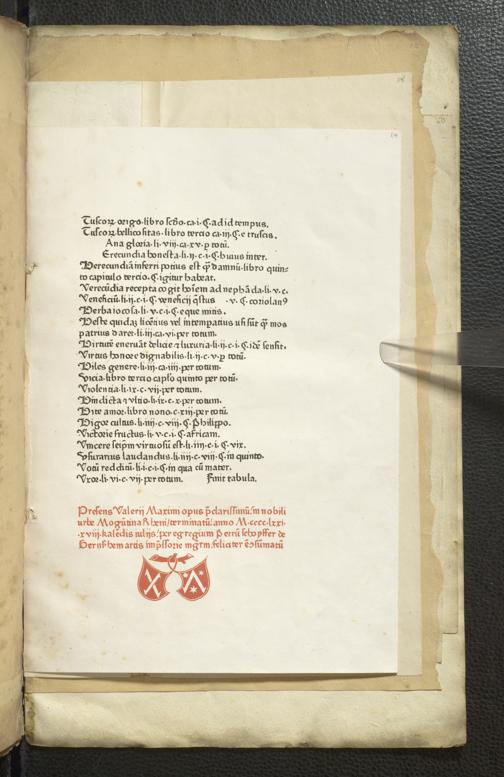 Tuscoꝝ origo·libro scḋo·ca·i·ꝯ·ad id tempus.
Tuscoꝝ bellicositas·libro tercio ca·iij·ꝯ·e truscis.
Ana gloria·li·viij·ca·xv·ꝑ totū.
Erecundia honesta·li·ij·c·i·ꝯ·huius inter.
Verecundiā inferri potius est q̄ damnū·libro quin-
to capitulo tercio·ꝯ·igitur habeat.
Verecūdia recepta cogit hoīem ad nephāda·li·v·c.
Veneficiū·li·ij·c·i·ꝯ·veneficij q̄stus ·v·ꝯ·coriolanꝰ
Verba iocosa·li·v·c·i·ꝯ·eque mitis.
Veste quidaꝫ licētius vel intempatius usi sūt q̄ mos
patrius daret·li·iij·ca·vi·per totum.
Virtutē eneruāt delicie ⁊ luxuria·li·ij·c·i·ꝯ·idē sensit.
Virtus honore dignabilis·li·ij·c·v·ꝑ totū.
Viles genere·li·iij·ca·iiij·per totum.
Vicia·libro tercio capl̄o quinto per totū.
Violentia·li·ix·c·vij·per totum.
Vindicta ⁊ vltio·li·ix·c·x·per totum.
Vite amor·libro nono·c·xiij·per totū.
cultus·li·iiij·c·viij·ꝯ·Philippo.
Victorie fructus·li·v·c·i·ꝯ·africam.
Vincere seip̄m virtuosū est·li·iiij·c·i·ꝯ·vix.
Vsurarius laudandus·li·iiij·c·viij·ꝯ·in quinto.
Votū redditū·li·i·c·i·ꝯ·in qua cū mater.
Vxor·li·vi·c·vij·per totum. Finit tabula.
Presens Valerij Maximi opus p̄clarissimū·in nobili
urbe Mogūtina Rheni/terminatū·anno M·cccc·lxxi·
·xviij·kalēdis iulijs·per egregium Petrū schoyffer de
Gernsshem artis imp̄ssorie mgr̄m·feliciter ē ꝯsūmatū